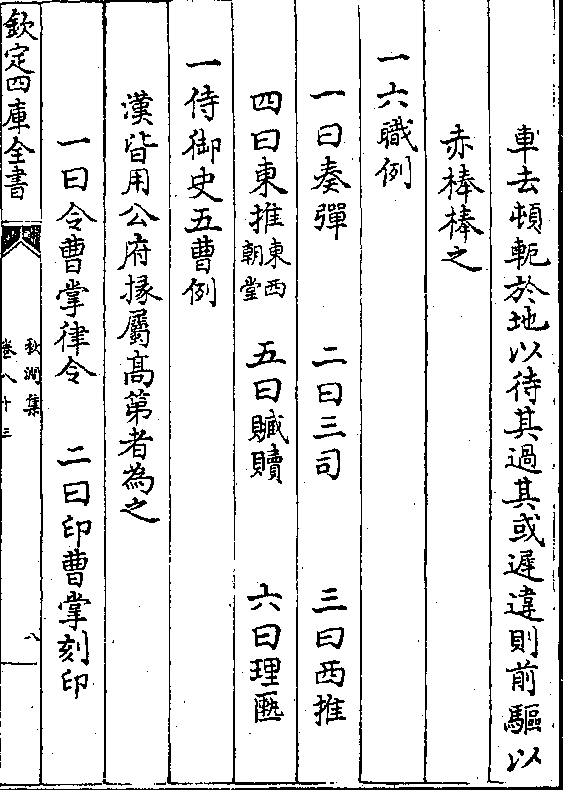 車去頓軛於地以待其過其或遲違則前驅以
赤棒棒之
一六職例
一曰奏彈 二曰三司 三曰西推
四曰東推東西朝堂 五曰贓贖 六曰理匭
一侍御史五曹例
漢皆用公府掾屬髙第者為之
一曰令曹掌律令 二曰印曹掌刻印
欽定四庫全書
秋澗集
卷八十三
八